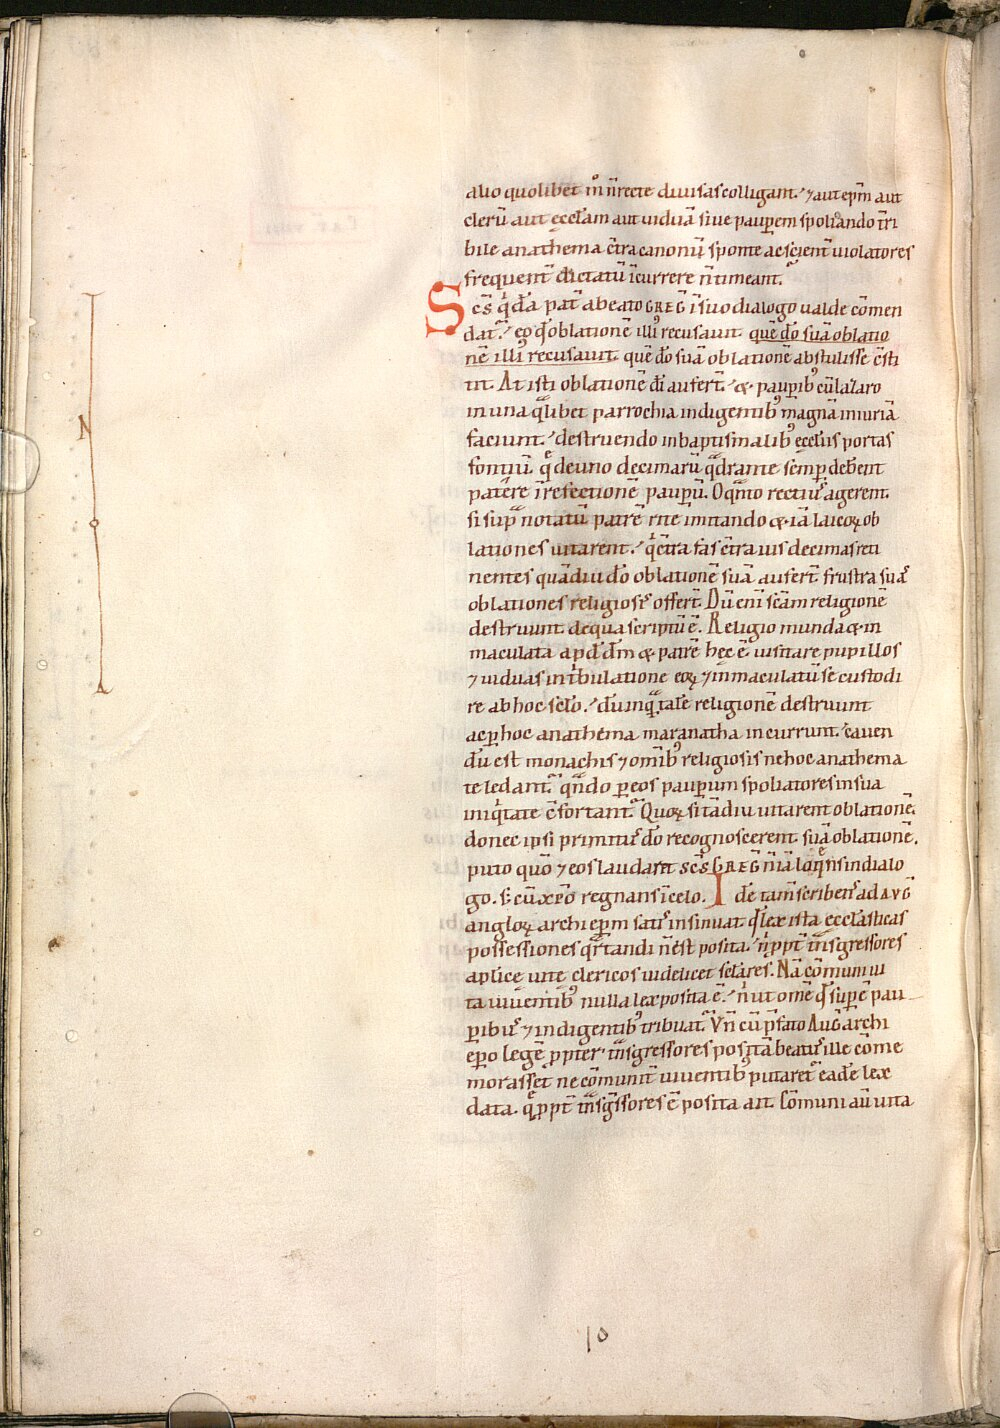 alio quolibet m̊ n̄ recte diuisas colligant. ⁊ aut ep̄m aut
clerū aut ecclam aut uiduā siue paupem spoliando t̄ri
bile anathema c̄tra canonū sponte ac scient̄ uiolatores
frequent̄ dictatū īcurrere n̄ timeant.
Sc̄s qͥdā pat̄ a beato GREḠ ī suo dialogo ualde cōmen
dat̄. eo qd̄ oblationē illi recusauit quē do suā oblatio
nē illi recusauit quē do suā oblationē abstulisse c̄sti
tit. At isti oblationē di aufert̄. & paupibꝰ cū lazaro
in una qlibet parrochia indigentibꝰ magnā iniuriā
faciunt. destruendo in baptismalibꝰ ecclis portas
fontiū. q̄ de uno decimarū qdrante semp debent
patere ī refectionē paupū. O qm̄o rectiꝰ agerent.
si sup̄ notatū patrē rite imitando & iā laicoꝝ ob
lationes uitarent. q c̄tra fas c̄tra ius decimas reti
nentes quādiu do oblationē suā aufert̄ frustra suas
oblationes religiosis offert̄. Dū eni scām religionē
destruunt de qua scriptū ē. Religio munda & in
maculata apd dm̄ & patrē hec ē uisitare pupillos
⁊ uiduas in tͥbulatione eoꝝ ⁊ inmaculatū se custodi
re ab hoc sclo. dum qͥ tale religionē destruunt
ac p hoc anathema maranatha incurrunt. cauen
dū est monachis ⁊ om̄ibꝰ religiosis ne hoc anathema
te ledant̄. qn̄do p eos pauperum spoliatores in sua
iniqͥtate c̄fortant̄. Quoꝝ si tādiu uitarent oblationē.
donec ipsi primitꝰ do recognoscerent suā oblationē.
puto quō ⁊ eos laudaret SC̄S GREḠ n̄ iā loqns in dialo
go. s; cū xp̄o regnans ī celo. Idē tam̄ scribens ad AVḠ
angloꝝ archiep̄m satis insinuat qd̄ lex ista ecclasticas
possessiones qͣrtandi n̄ est posita. n̄ ppt̄ tͣnsgressores
aplice uite clericos uidelicet sclares. Nā cōmuni ui
ta uiuentibꝰ nulla lex posita ē. n̄ ut om̄e qd̄ supē pau
pibꝰ ⁊ indigentibꝰ tribuat̄. Vn̄ cū p̄fato AVḠ archi
ep̄o legē ppter tͣnsgressores positā beatꝰ ille cōme
morasset ne cōmunit̄ uiuentibꝰ putaret̄ eadē lex
data. q̄ ppt̄ tͣnsgͥssores ē posita ait. Cōmuni aū uita
N
10